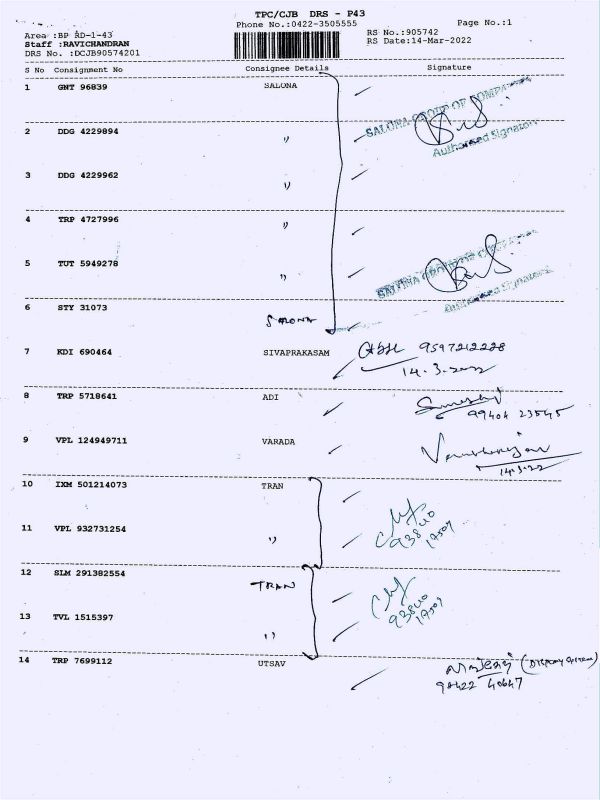 TPC/CJB DRS - P43
Phone No.:0422-3505555
Page No.:1
Area :BP RD-1-43
RS No.:905742
Staff :RAVICHANDRAN
RS Date:14-Mar-2022
DRS No. :DCJB90574201
S No Consignment No Consignee Details Signature
1 GNT 96839 SALONA
SALONA GROUP OF COMPANIES
Authorised Signatory
2 DDG 4229894 "
3 DDG 4229962 "
4 TRP 4727996 "
5 TUT 5949278 "
SALONA GROUP OF COMPANIES
Authorised Signatory
6 STY 31073 SALONA
7 KDI 690464 SIVAPRAKASAM 9597212228
14.3.2022
8 TRP 5718641 ADI
99404 23545
9 VPL 124949711 VARADA
14.3.22
10 IXM 501214073 TRAN
11 VPL 932731254 "
93840
17507
12 SLM 291382554 TRAN
93840
17507
13 TVL 1515397 "
14 TRP 7699112 UTSAV
98422 40647